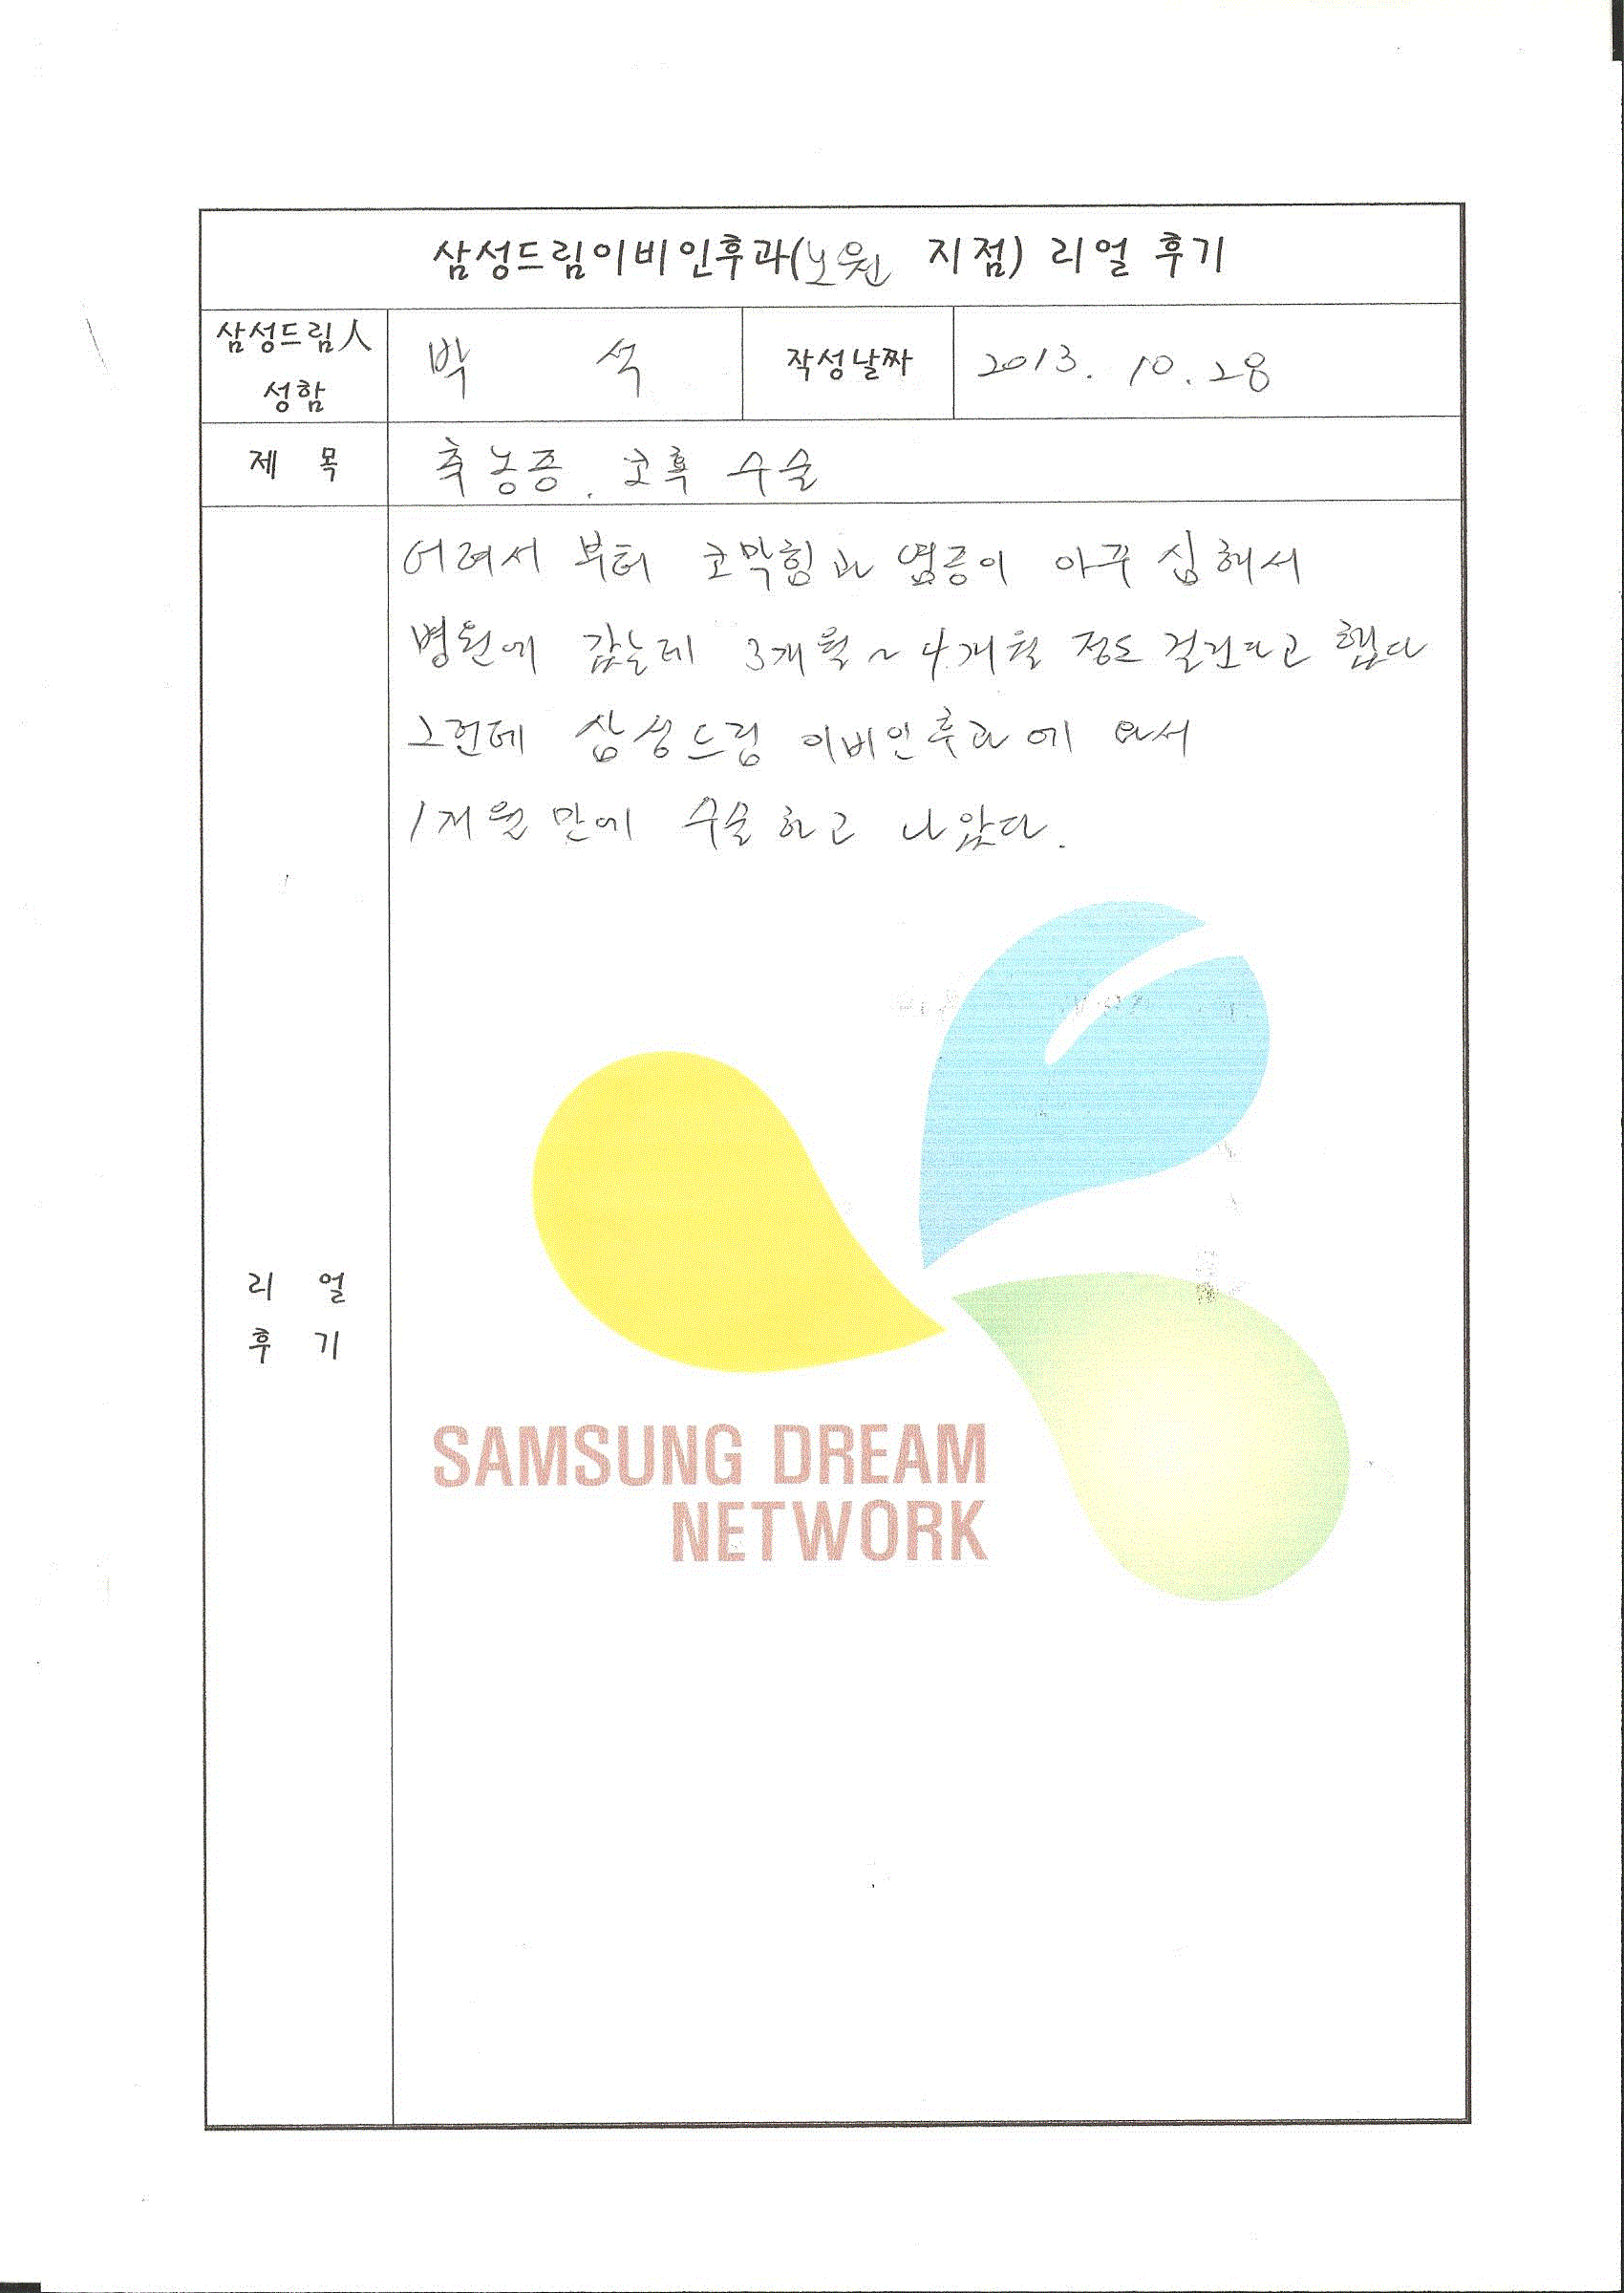 삼성드림이비인후과(노원 지점) 리얼 후기
삼성드림人 성함
박 석
작성날짜
2013. 10. 28
제 목
축농증. 코혹 수술
어려서 부터 코막힘과 염증이 아주 심해서
병원에 갔는데 3개월~4개월 정도 걸린다고 했다
그런데 삼성드림 이비인후과에 와서
1개월 만에 수술하고 나았다.
리 얼
후 기
SAMSUNG DREAM
NETWORK